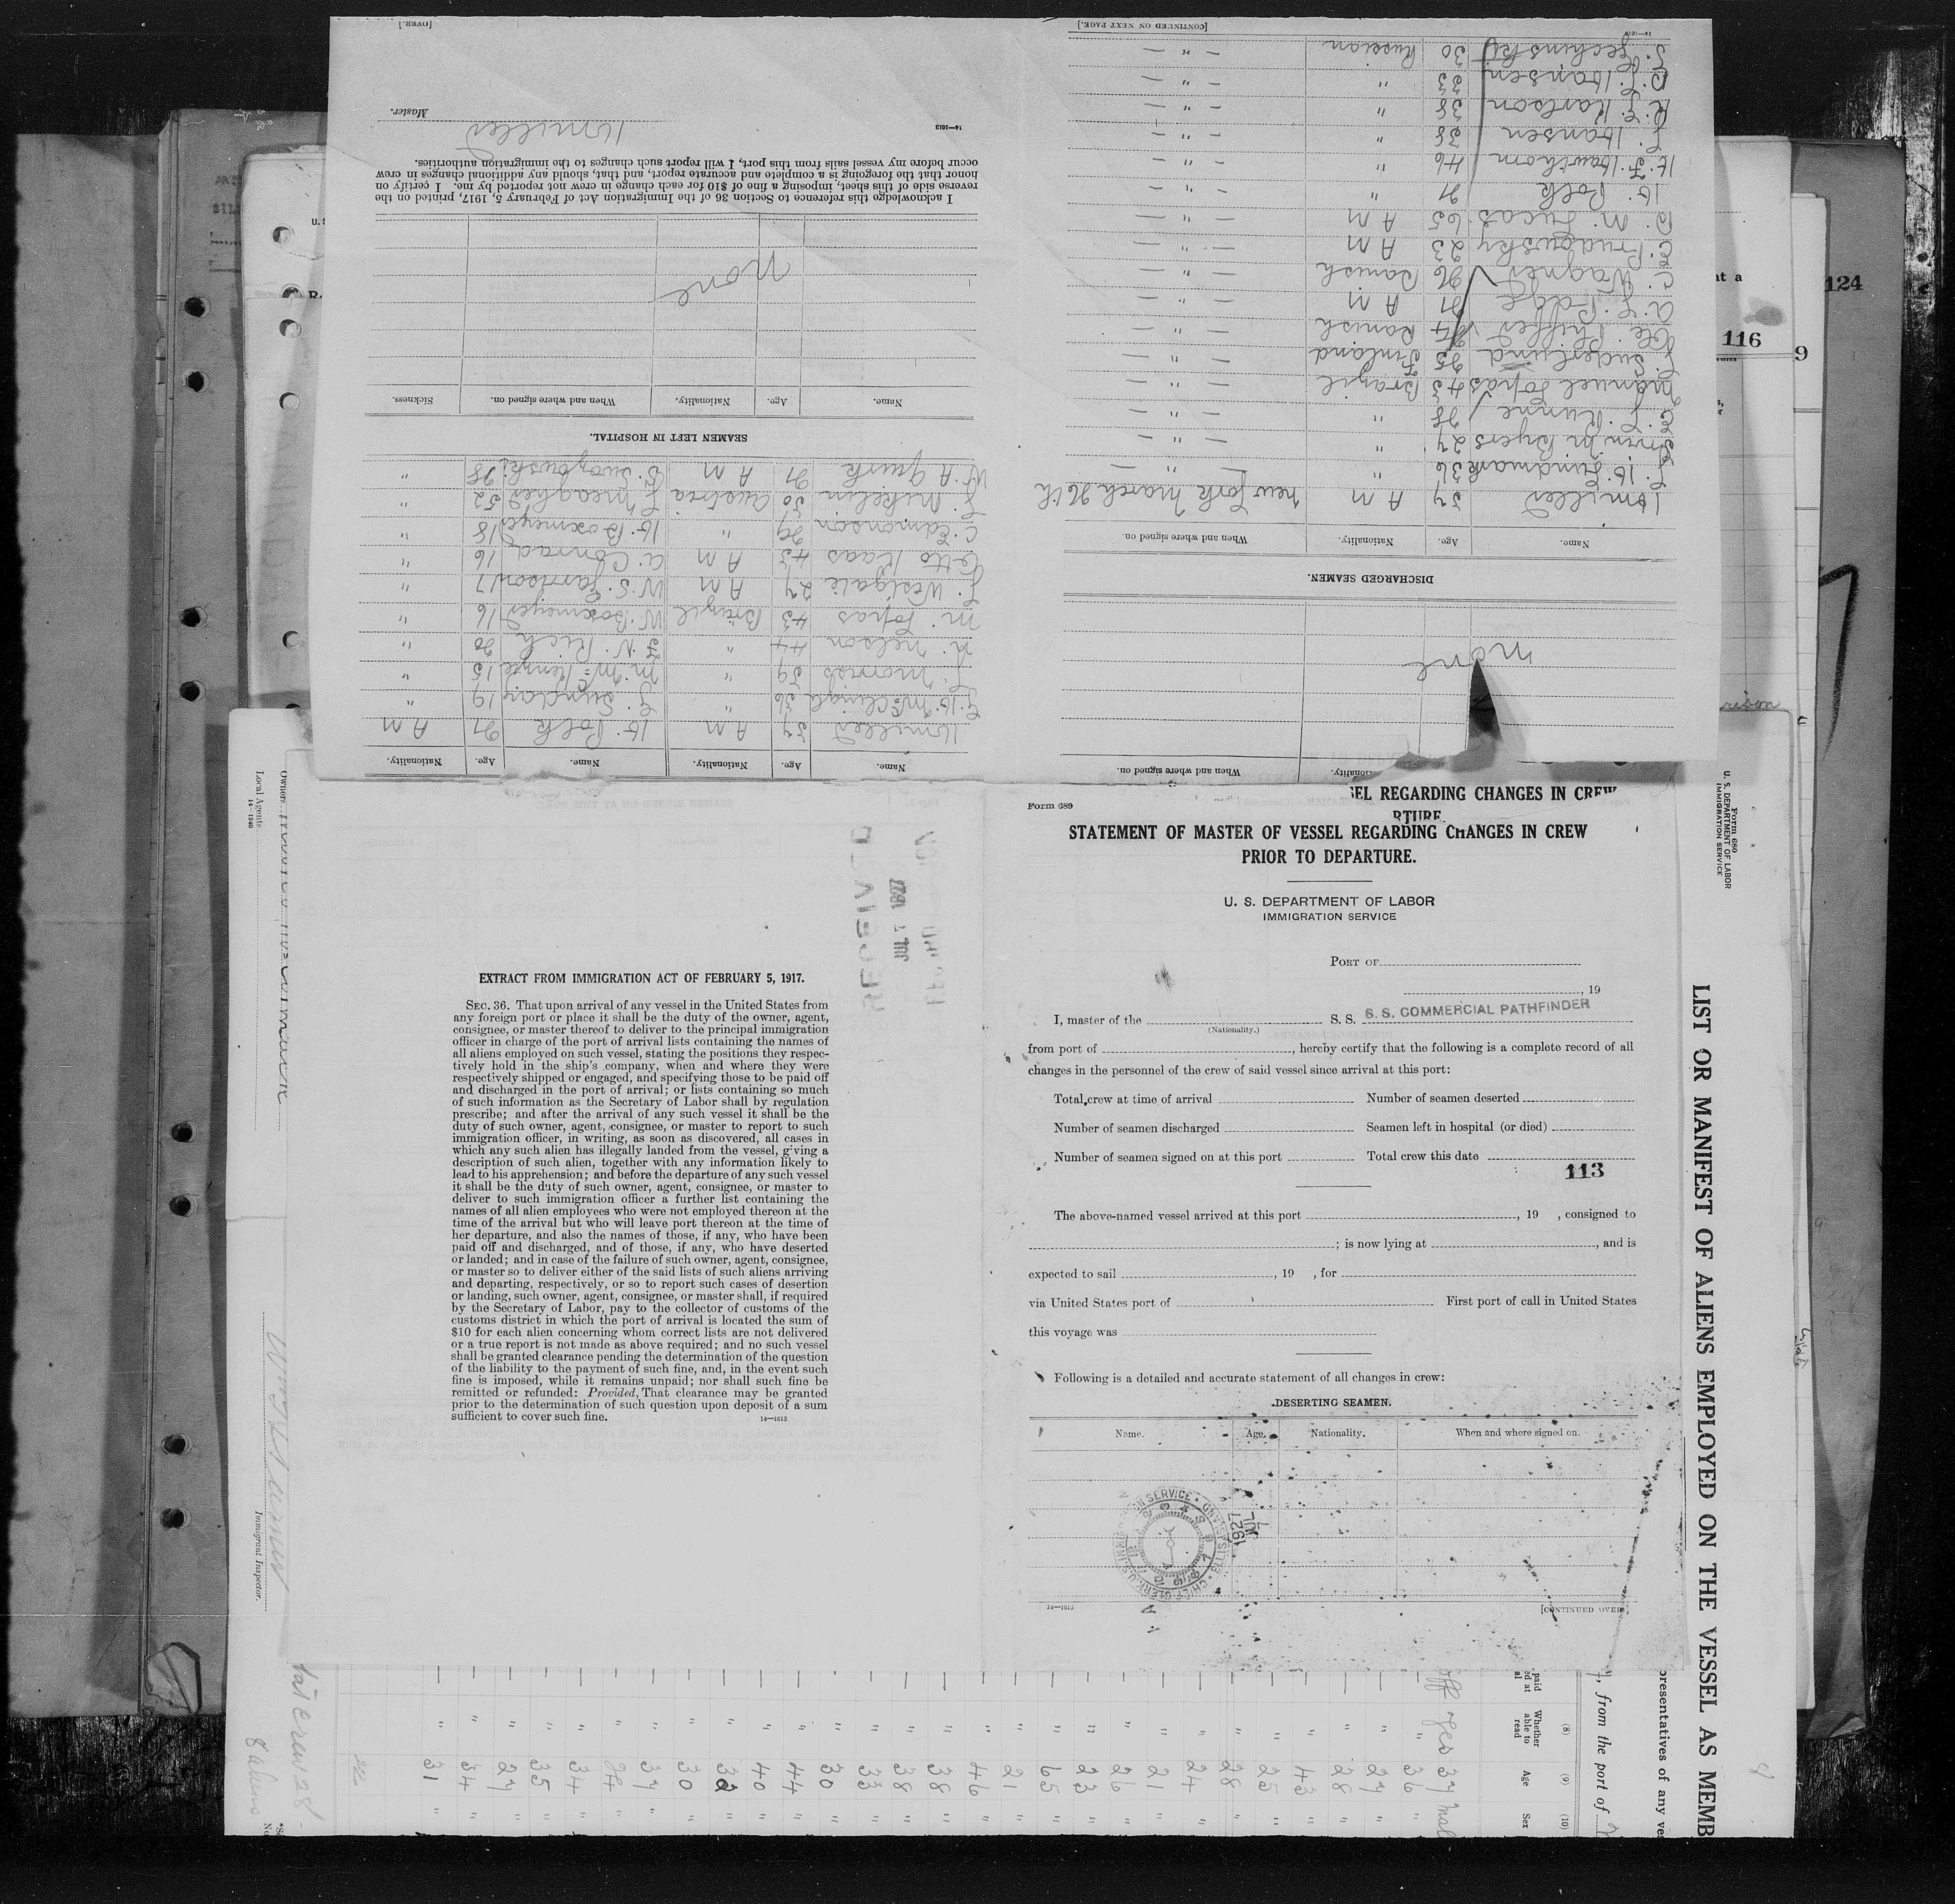 Form 689
STATEMENT OF MASTER OF VESSEL REGARDING CHANGES IN CREW
PRIOR TO DEPARTURE.
U. S. DEPARTMENT OF LABOR
IMMIGRATION SERVICE
PORT OF
, 19
I, master of the S. S. S. S. COMMERCIAL PATHFINDER
(Nationality.)
from port of , hereby certify that the following is a complete record of all
changes in the personnel of the crew of said vessel since arrival at this port:
Total crew at time of arrival Number of seamen deserted
Number of seamen discharged Seamen left in hospital (or died)
Number of seamen signed on at this port Total crew this date
113
The above-named vessel arrived at this port , 19 , consigned to
; is now lying at , and is
expected to sail , 19 , for
via United States port of First port of call in United States
this voyage was
Following is a detailed and accurate statement of all changes in crew:
DESERTING SEAMEN.
Name. Age. Nationality. When and where signed on.
1927
JUL
7
14—1613 [CONTINUED OVER]
EXTRACT FROM IMMIGRATION ACT OF FEBRUARY 5, 1917.
SEC. 36. That upon arrival of any vessel in the United States from
any foreign port or place it shall be the duty of the owner, agent,
consignee, or master thereof to deliver to the principal immigration
officer in charge of the port of arrival lists containing the names of
all aliens employed on such vessel, stating the positions they respec-
tively hold in the ship's company, when and where they were
respectively shipped or engaged, and specifying those to be paid off
and discharged in the port of arrival; or lists containing so much
of such information as the Secretary of Labor shall by regulation
prescribe; and after the arrival of any such vessel it shall be the
duty of such owner, agent, consignee, or master to report to such
immigration officer, in writing, as soon as discovered, all cases in
which any such alien has illegally landed from the vessel, giving a
description of such alien, together with any information likely to
lead to his apprehension; and before the departure of any such vessel
it shall be the duty of such owner, agent, consignee, or master to
deliver to such immigration officer a further list containing the
names of all alien employees who were not employed thereon at the
time of the arrival but who will leave port thereon at the time of
her departure, and also the names of those, if any, who have been
paid off and discharged, and of those, if any, who have deserted
or landed; and in case of the failure of such owner, agent, consignee,
or master so to deliver either of the said lists of such aliens arriving
and departing, respectively, or so to report such cases of desertion
or landing, such owner, agent, consignee, or master shall, if required
by the Secretary of Labor, pay to the collector of customs of the
customs district in which the port of arrival is located the sum of
$10 for each alien concerning whom correct lists are not delivered
or a true report is not made as above required; and no such vessel
shall be granted clearance pending the determination of the question
of the liability to the payment of such fine, and, in the event such
fine is imposed, while it remains unpaid; nor shall such fine be
remitted or refunded: Provided, That clearance may be granted
prior to the determination of such question upon deposit of a sum
sufficient to cover such fine.
14—1613
When and where signed on.
None
DISCHARGED SEAMEN.
Name. Age. Nationality. When and where signed on.
H Miller 37 A M New York March 26th
J. H. Lindmark 36 " — " —
Irvin M Byers 27 " — " —
C. J. Kunne 28 " — " —
Manuel Lopas 43 Brazil — " —
J. Suderlund 25 Finland — " —
Ole Phiffer 24 Danish — " —
A. L. Page 21 A M — " —
C. Wagner 26 Danish — " —
C. Prudowsky 23 A M — " —
D. M. Lucas 65 A M — " —
H. Polk 21 " — " —
H. F. Hawthorn 46 " — " —
L. Hansen 38 " — " —
R. E. Karlson 38 " — " —
D. L. Hansen 33 " — " —
J. Jechinsky 30 Russian — " —
14—1613
[CONTINUED ON NEXT PAGE.]
Name. Age. Nationality. Name. Age. Nationality.
H Miller 37 A M H. Polk 21 A M
G. H. McClingl 36 " G. Sunday 19 "
L. Morris 39 " M. McKenzie 15 "
N. Nelson 44 " F. N. Rich 20 "
M. Lopas 43 Brazil W. Bosemeyer 16 "
J. Westgate 27 A M W. S. Garrison 17 "
Otto Haas 43 A M A. Conrad 16 "
C. Edmonson 29 " H. Bosemeyer 18 "
J. Mikelin 30 Austria J. Meagher 52 "
W. A. Quirk 21 A M B. Swoyowski 28 "
SEAMEN LEFT IN HOSPITAL.
Name. Age. Nationality. When and where signed on. Sickness.
None
I acknowledge this reference to Section 36 of the Immigration Act of February 5, 1917, printed on the
reverse side of this sheet, imposing a fine of $10 for each change in crew not reported by me. I certify on
honor that the foregoing is a complete and accurate report, and that, should any additional changes in crew
occur before my vessel sails from this port, I will report such changes to the immigration authorities.
H Miller
Master.
14—1613
[OVER.]
SEL REGARDING CHANGES IN CREW
RTURE.
RECEIVED
124
116
9
Form 689
U. S. DEPARTMENT OF LABOR
IMMIGRATION SERVICE
LIST OR MANIFEST OF ALIENS EMPLOYED ON THE VESSEL AS MEMB
presentatives of any ves
, from the port of
(8) (9) (10)
Whether able to read
Age
Sex
Owners
Local Agents
14—1240
Immigrant Inspector.
Total crew 28
8 aliens